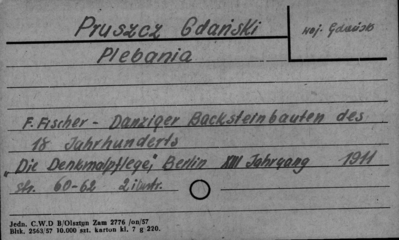 Pruszcz Gdański
woj. Gdańsk
Plebania
F. Fischer - Danziger Backsteinbauten des
18 Jahrhunderts
"Die Denkmalpflege; Berlin XIII Jahrgang 1911
str. 60-62 2 ilustr.
Jedn. C.W.D B/Olsztyn Zam 2776 /on/57
Bltk. 2563/57 10.000 szt. karton kl. 7 g 220.